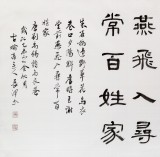 燕飛入尋
常百姓家
朱雀橋邊野草花烏衣
巷口夕陽斜舊時王謝
堂前燕飛入尋常百
姓家
唐劉禹錫詩烏衣巷